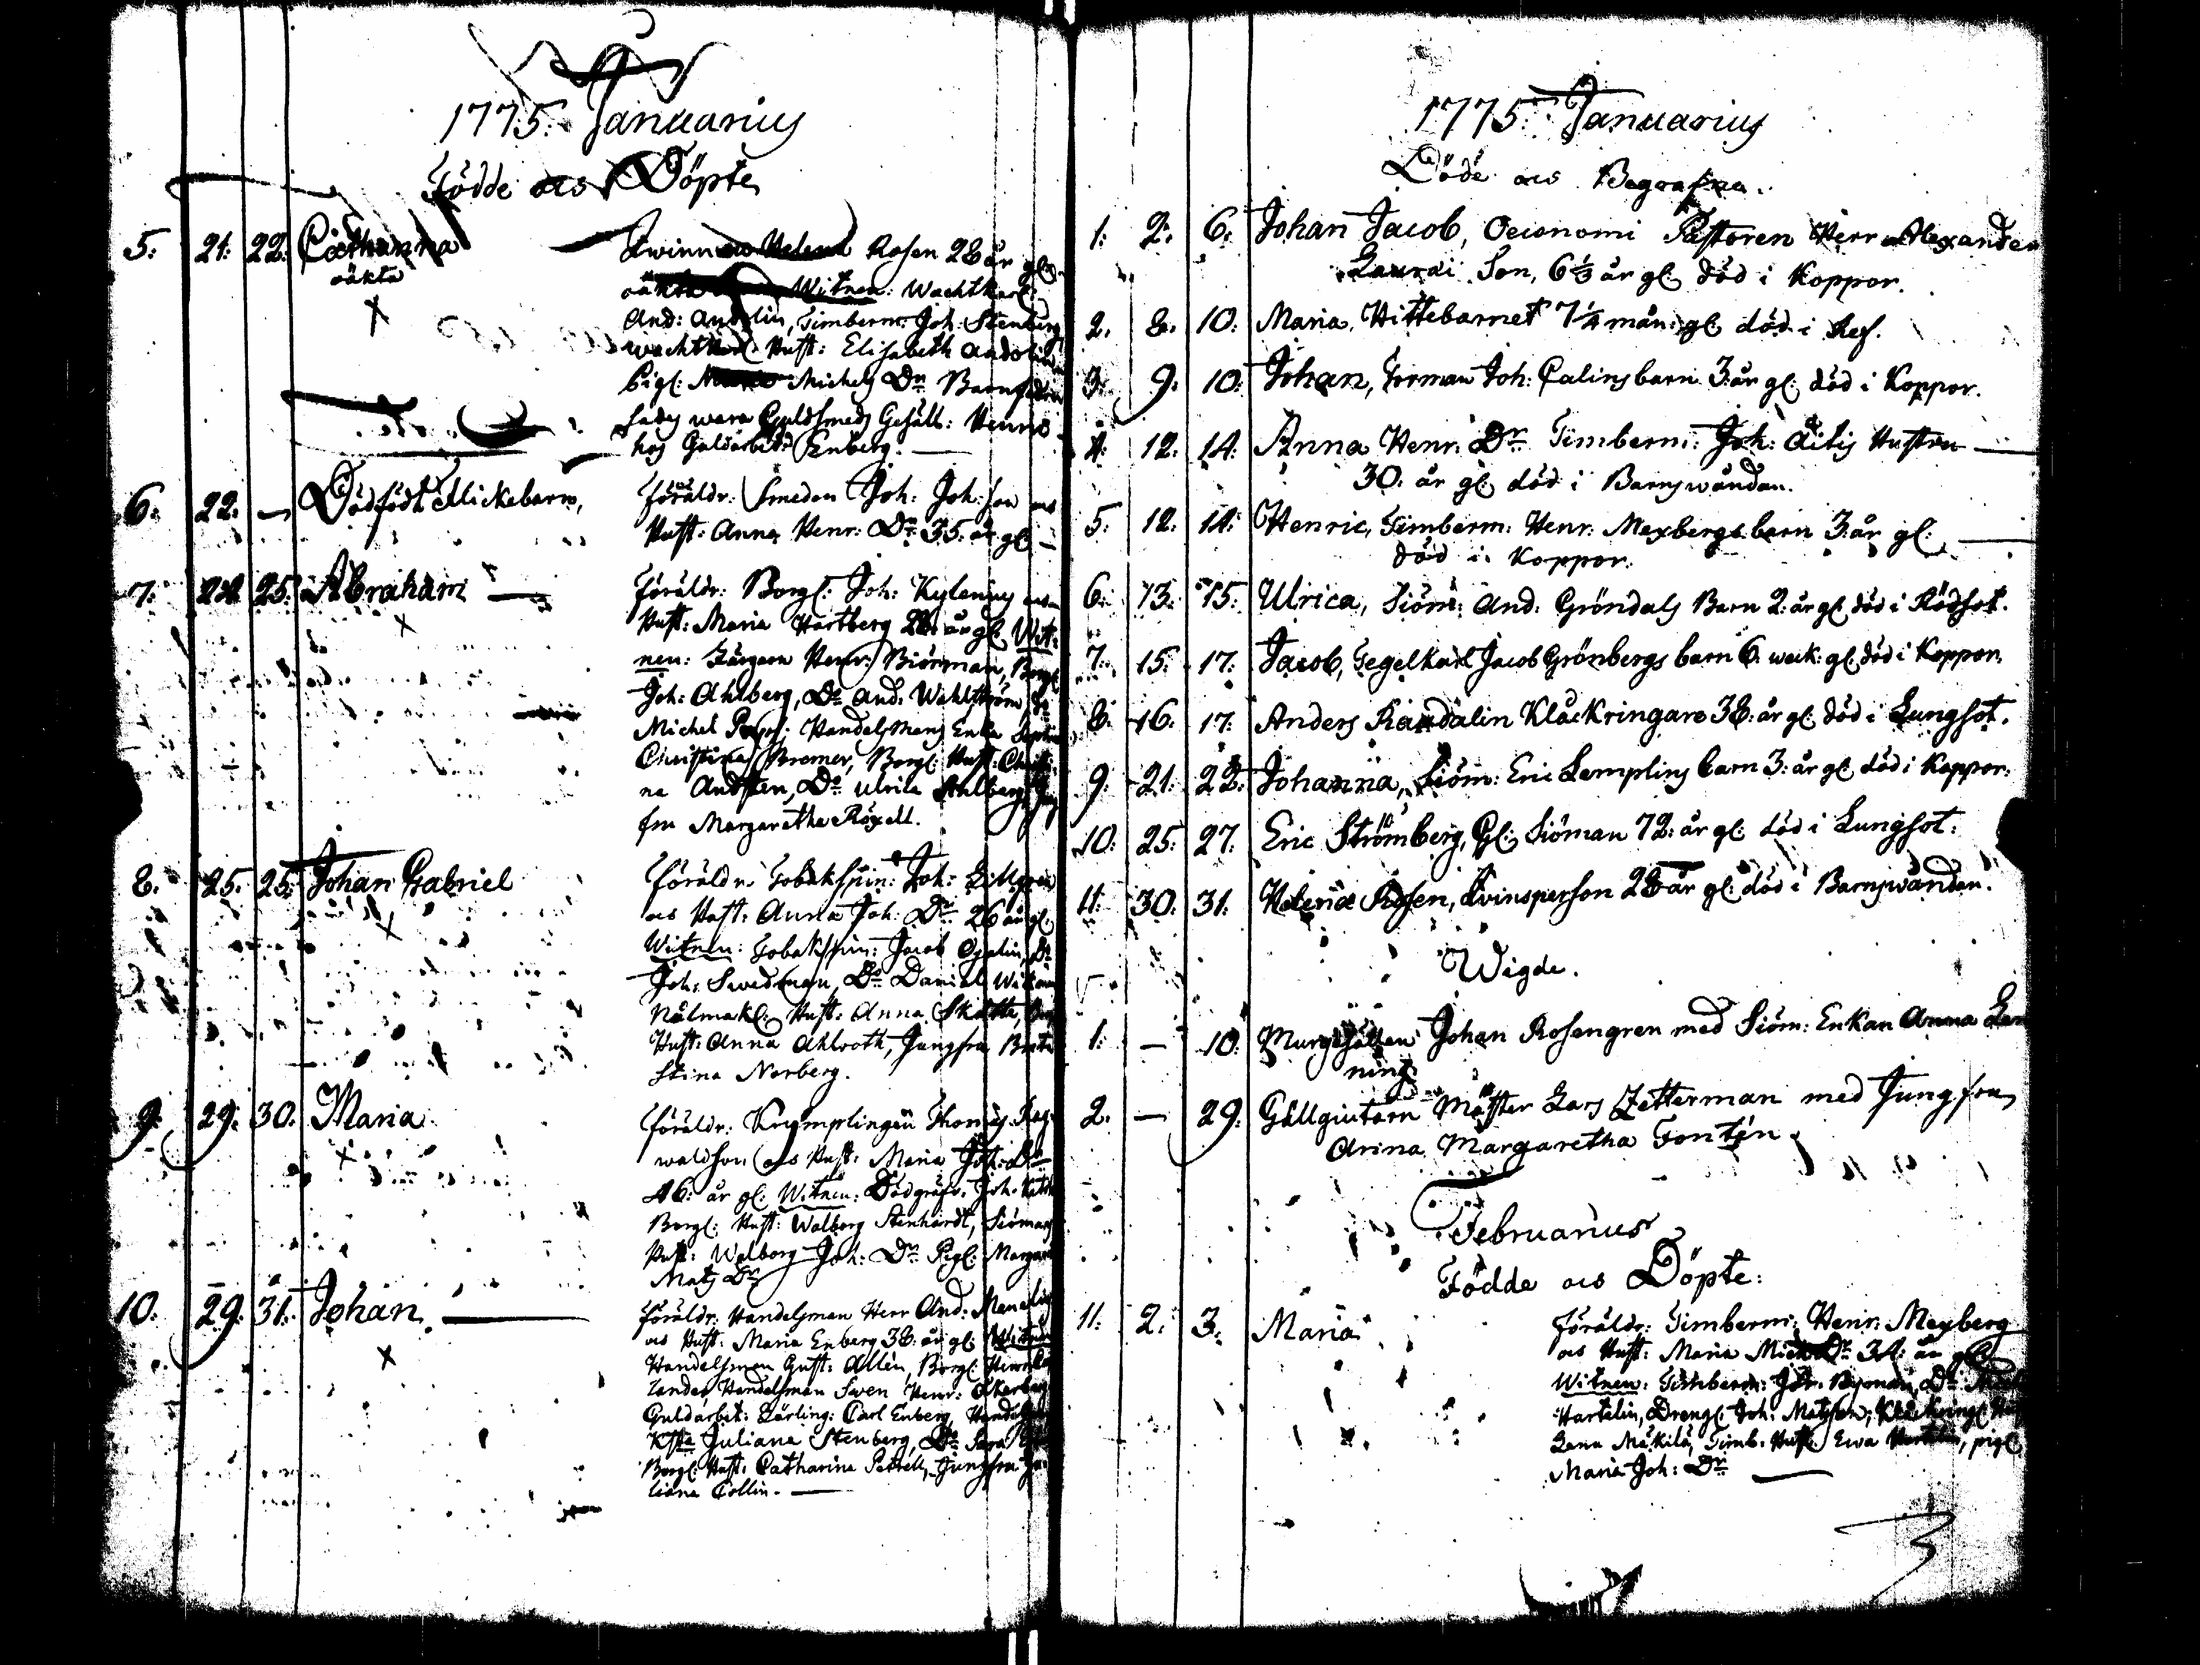 1775. Januarius
Födde ocs Döpte
5. 21. 22. Cathanna
oäkta
Kvinn Helena Rosen 28 år gl:
oäkta Witnen: Wachtkarl:
And: Andolin, Timberm: Joh: Stenberg
wachtkarl. Hust: Elisabeth Andolin
Pigl: Michels Dr Barnfadren
sades wara Guldsmeds Gesäll: Henric
hos Guldarbet: Enberg.
6. 22. — Dödfödt flickebarn,
Föräldr: Smeden Joh: Joh:son ocs
Hust: Anna Henr: Dr 35. år gl —
7. 24. 25. Abraham
Föräldr: Borgl: Joh: Kylenius ocs
Hust: Maria Hartberg 28. år gl: Wit-
nen: Färgaren Henr: Biörman, Borgl
Joh: Ahlberg, Do And: Wahlström, Do
Michel Handelsmans Enka
Christina Bremer, Borgl: Hust: Christi-
na Andsten, Do Ulrila Ahlberg, Jung
fru Margaretha Röxell.
8. 25. 25. Johan Gabriel
Föräldr: Tobakspin: Joh: Lillgren
ocs Hust: Anna Joh: Dr 26 år gl:
Witnen: Tobakspin: Jacob Do
Joh: Swedman, Do Daniel
Nålmakl: Hust: Anna Skatta,
Hust: Anna Ahlroth, Jungfru Brita
Stina Norberg.
9. 29. 30. Maria
Föräldr: Krymplingen Thomas Rag-
waldson ocs Hust: Maria Joh: Dr
46. år gl: Witnen: Dödgräfv: Joh:
Borgl: Hust: Walborg Stenhardt, Siömans
Hust: Walborg Joh: Dr Pigl: Margar
Mats Dr
10. 29. 31. Johan
Föräldr: Handelsman Herr And: Manelius
ocs Hust: Maria Enberg 38. år gl: Witnen
Handelsman Gust: Allén, Borgl: Henr:
Handelsman Swen Henr: Åkerberg
Guldarbet: Lärling: Carl Enberg,
Juliana Stenberg, Do Sara
Borgl: Hust: Catharina Pettrell, Jungfru Ju-
liana Collin.
1775. Januarius
Döde ocs Begrafne.
1. 2. 6. Johan Jacob, Oeconomi Pastoren Herr Alexander
Laurai Son, 6 1/3 år gl: död i Koppor.
2. 8. 10. Maria, Hittebarnet 7 1/4 mån: gl: död i Ref.
3. 9. 10. Johan, Forman Joh: Calins barn 3: år gl: död i Koppor.
4. 12. 14. Anna Henr: Dr Timberm: Joh: Hustru
30. år gl: död i Barnswåndan.
5. 12. 14. Henric, Timberm: Henr: Mexbergs barn 3: år gl:
död i Koppor.
6. 13. 15. Ulrica, Siöm: And: Gröndals Barn 2: år gl: död i Rödsot.
7. 15. 17. Jacob, Tegelkarl Jacob Grönbergs barn 6. weck: gl: död i Koppor.
8. 16. 17. Anders Randalin Klåckringare 38: år gl: död i Lungsot.
9. 21. 22. Johanna, Siöm: Eric Lemplins barn 3: år gl: död i Koppor.
10. 25. 27. Eric Strömberg, Gl: Siöman 72: år gl: död i Lungsot:
11. 30. 31. Helena Rosen, Kvinsperson 28 år gl: död i Barnswåndan.
Wigde.
1. — 10. Murgesällen Johan Rosengren med Siöm: Enkan Anna Len
ning
2. — 29. Gällgiutarn Mäster Lars Zetterman med Jungfru
Anna Margaretha Fontén
Februarius
Födde ocs Döpte:
11. 2. 3. Maria
Föräldr: Timberm: Henr: Mexberg
ocs Hust: Maria Mich: Dr 34. år gl:
Witnen: Timberm: Joh: Do
Hartelin, Drengl: Joh: Matson, Klåckringl:
Lena Mäkilä, Timb: Hust: Ewa pigl:
Maria Joh: Dr